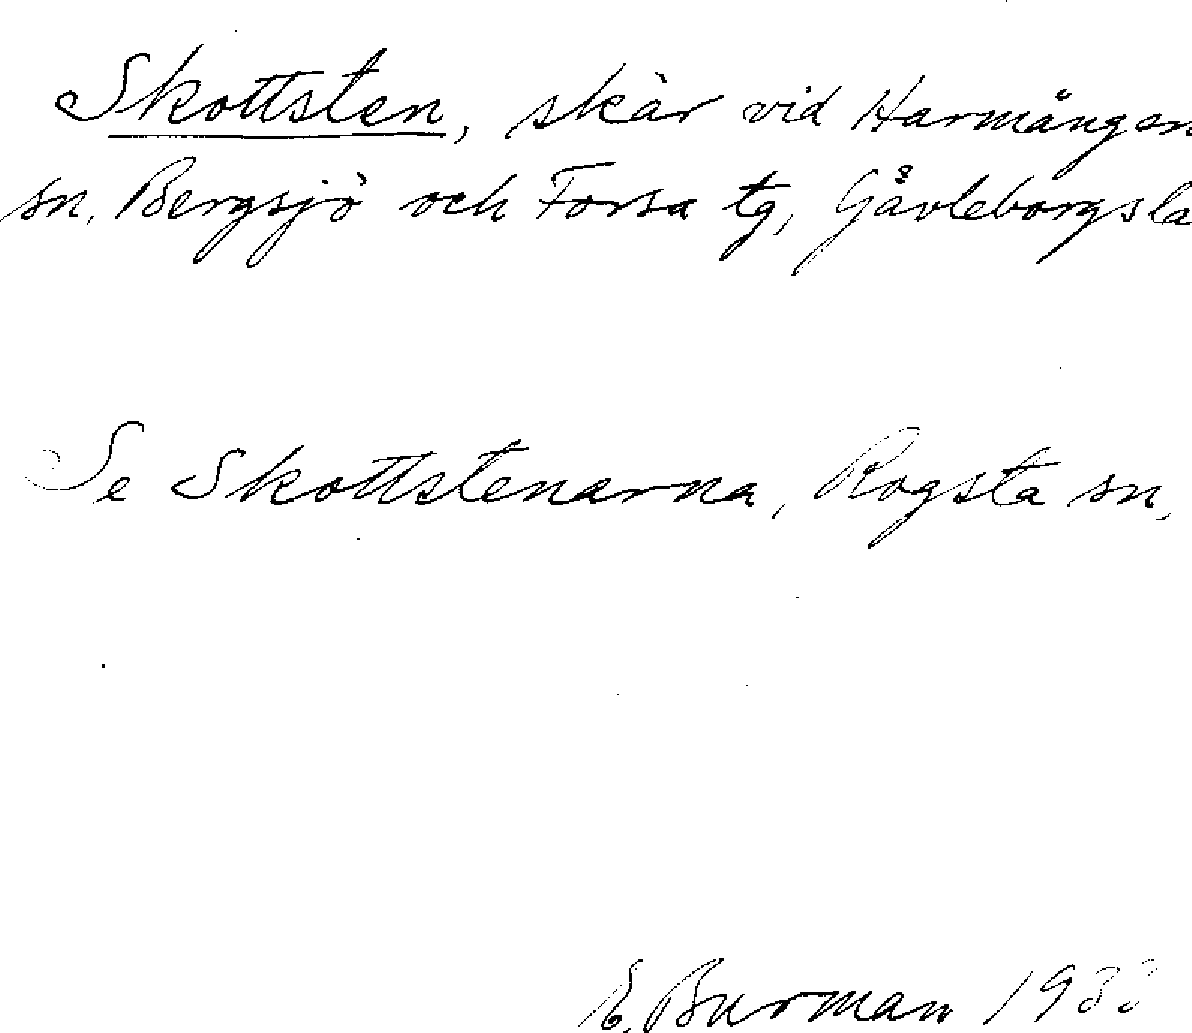 Skottsten, skär vid Harmången
sn, Bergsjö och Forsa tg, Gävleborgslä
Se Skottstenarna, Rogsta sn,
E. Burman